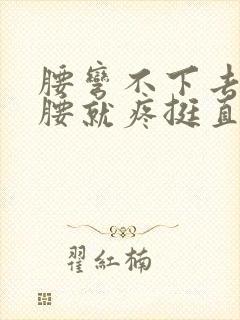 腰弯不下去
腰就疼挺直
翟红楠